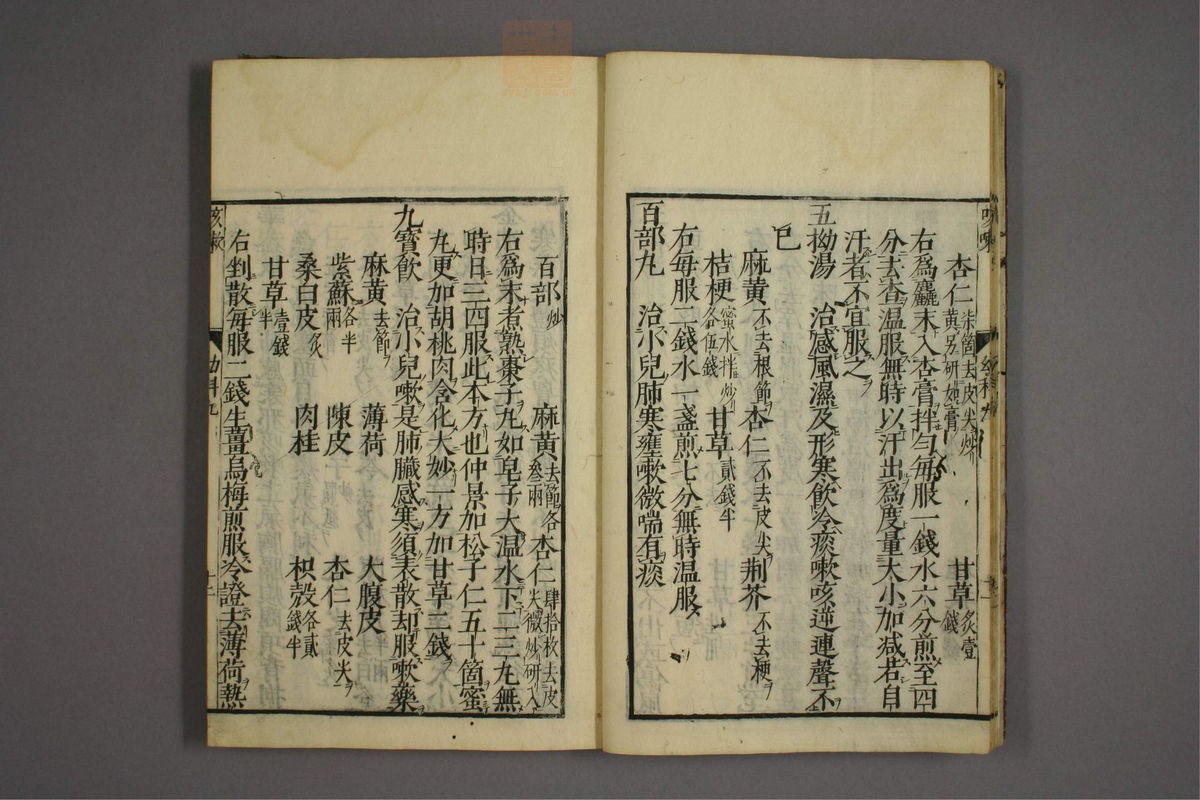 咳嗽
杏仁柒箇去皮尖炒黃另研如膏 甘草炙壹錢
右爲麤末入杏膏拌勻每服一錢水六分煎至四
分去查温服無時以汗出爲度量大小加减若自
汗者不宜服之
五拗湯 治感風濕及形寒飲冷痰嗽咳逆連聲不
已
麻黃不去根節 杏仁不去皮尖 荆芥不去梗
桔梗蜜水拌炒各伍錢 甘草貳錢半
右每服二錢水一盞煎七分無時温服
百部丸 治小兒肺寒壅嗽微喘有痰
百部炒 麻黃去節各叁兩 杏仁肆拾枚去皮尖微炒研入
右爲末煮熟棗子丸如皂子大温水下二三丸無
時日三四服此本方也仲景加松子仁五十箇蜜
丸更加胡桃肉含化大妙一方加甘草二錢
九寳飲 治小兒嗽是肺臟感寒須表散却服嗽藥
麻黃去節 薄荷 大腹皮
紫蘇各半兩 陳皮 杏仁去皮尖
桑白皮炙 肉桂 枳殼各貳錢半
甘草壹錢半
右剉散每服二錢生薑烏梅煎服冷證去薄荷熱
咳嗽 幼科九 十二